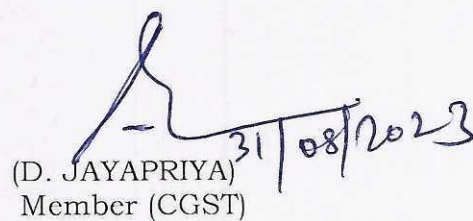 31/08/2023
(D. JAYAPRIYA)
Member (CGST)